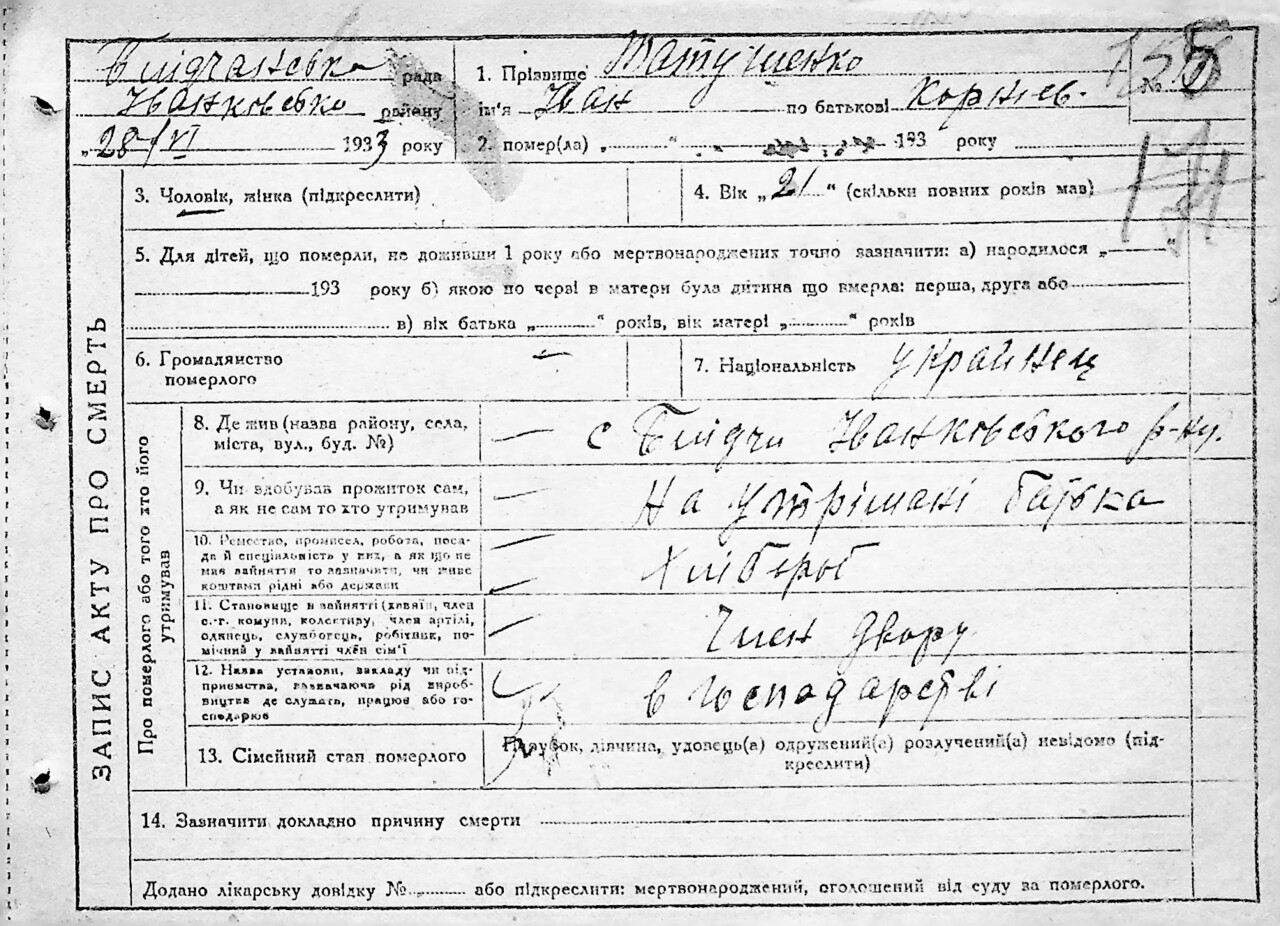 Блідчанська рада
Іванковсько району
„28/VI 1933 року
1. Прізвище Матушенко
ім'я Іван по батькові Корнієв.
2. помер(ла) „ “ 193 року
3. Чоловік, жінка (підкреслити)
4. Вік „21“ (скільки повних років мав)
171
5. Для дітей, що померли, не доживши 1 року або мертвонароджених точно зазначити: а) народилося „ “
193 року б) якою по черві в матери була дитина що вмерла: перша, друга або
в) віх батька „ “ років, вік матері „ “ років
6. Громадянство
померлого
7. Національність Украйнец
ЗАПИС АКТУ ПРО СМЕРТЬ
Про померлого або того хто його
утримував
8. Де жив (назва району, села,
міста, вул., буд. №)
с Блідчи Іванковського р-ну.
9. Чи вдобував прожиток сам,
а як не сам то хто утримував
На утрімані батька
10. Ремество, промисел, робота, поса-
да й спеціальність у них, а як що не
мав зайняття то зазначити, чи живе
коштами рідні або держави
Хлібороб
11. Становище в зайнятті (хазяїн, член
с.-г. комуни, колективу, член артілі,
одинець, службовець, робітник, по-
мічний у зайнятті член сім'ї
Член двору
12. Назва установи, закладу чи під-
приємства, зазначаючи рід вироб-
ництва де служить, працює або го-
сподарює
в господарстві
13. Сімейний стан померлого
Парубок, дівчина, удовець(а) одружений(а) розлучений(а) невідомо (під-
креслити)
14. Зазначити докладно причину смерти
Додано лікарську довідку № або підкреслити: мертвонароджений, оголошений від суду за померлого.